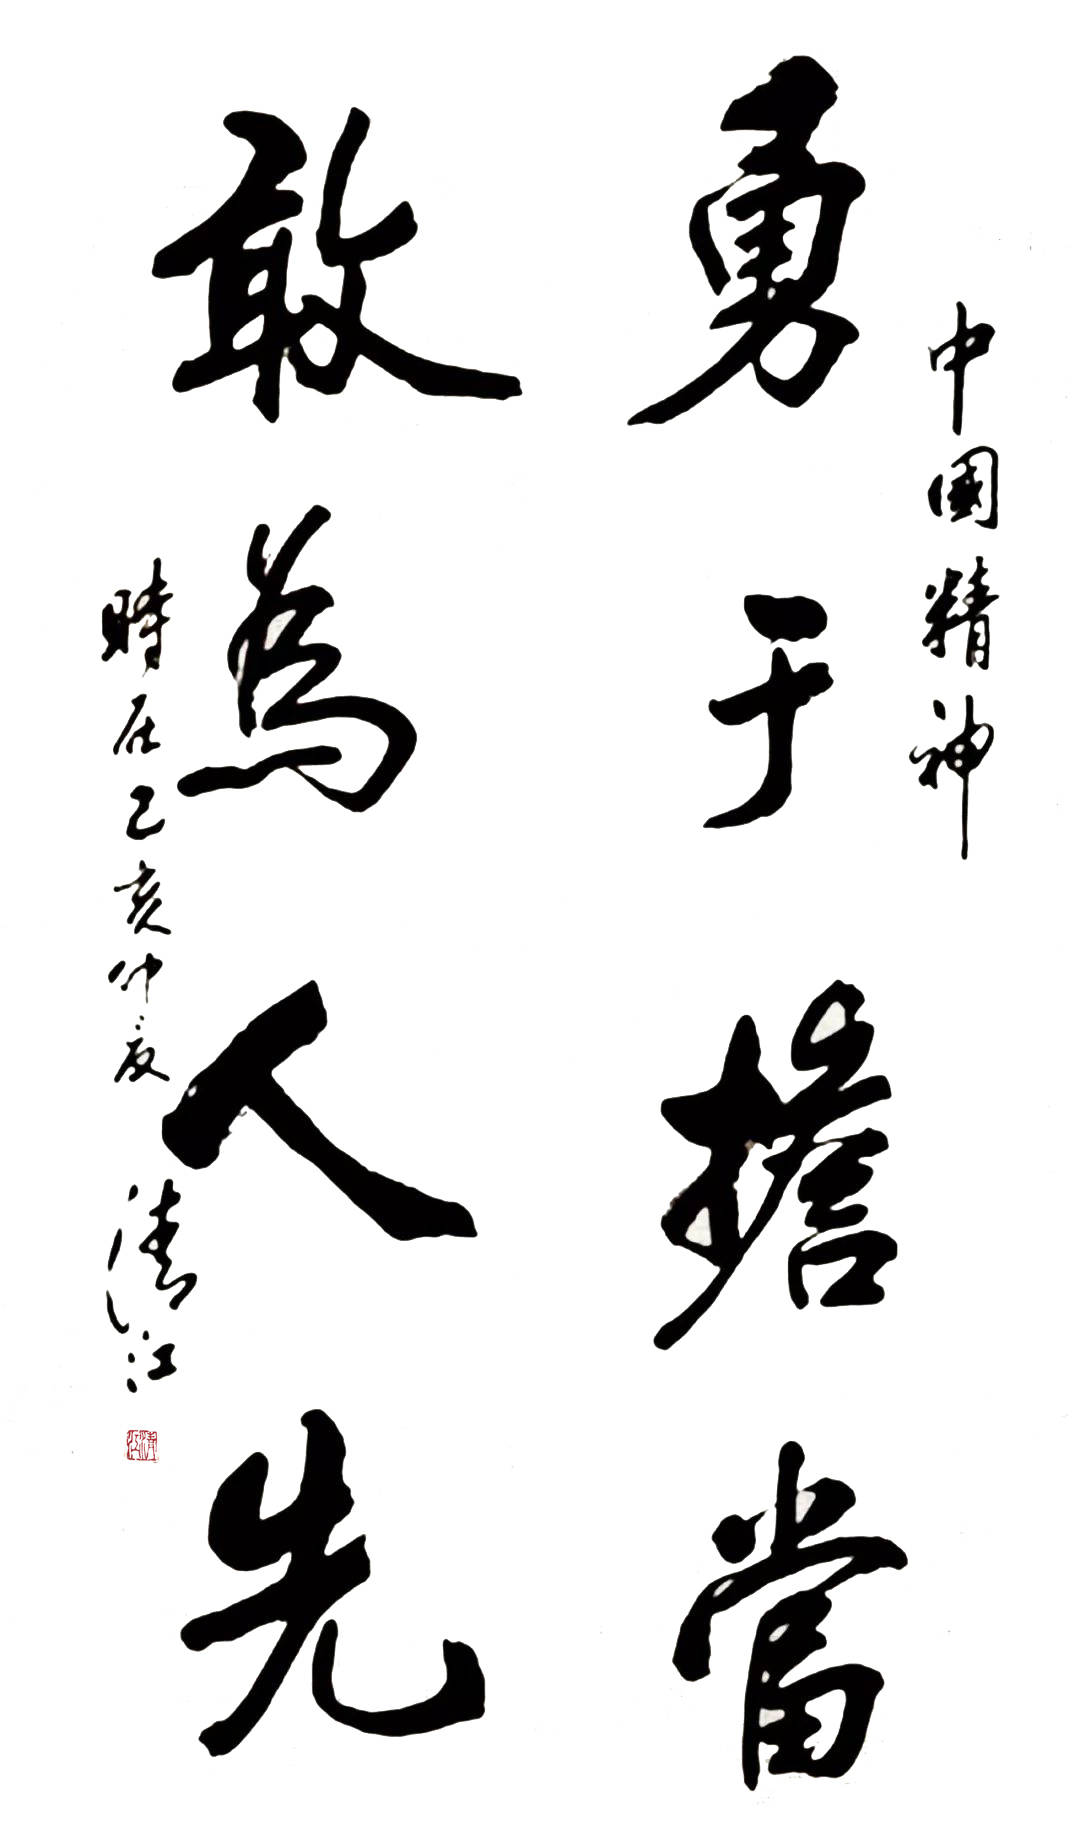 中國精神
勇于擔當
敢為人先
時在己亥仲夏 清江
清江